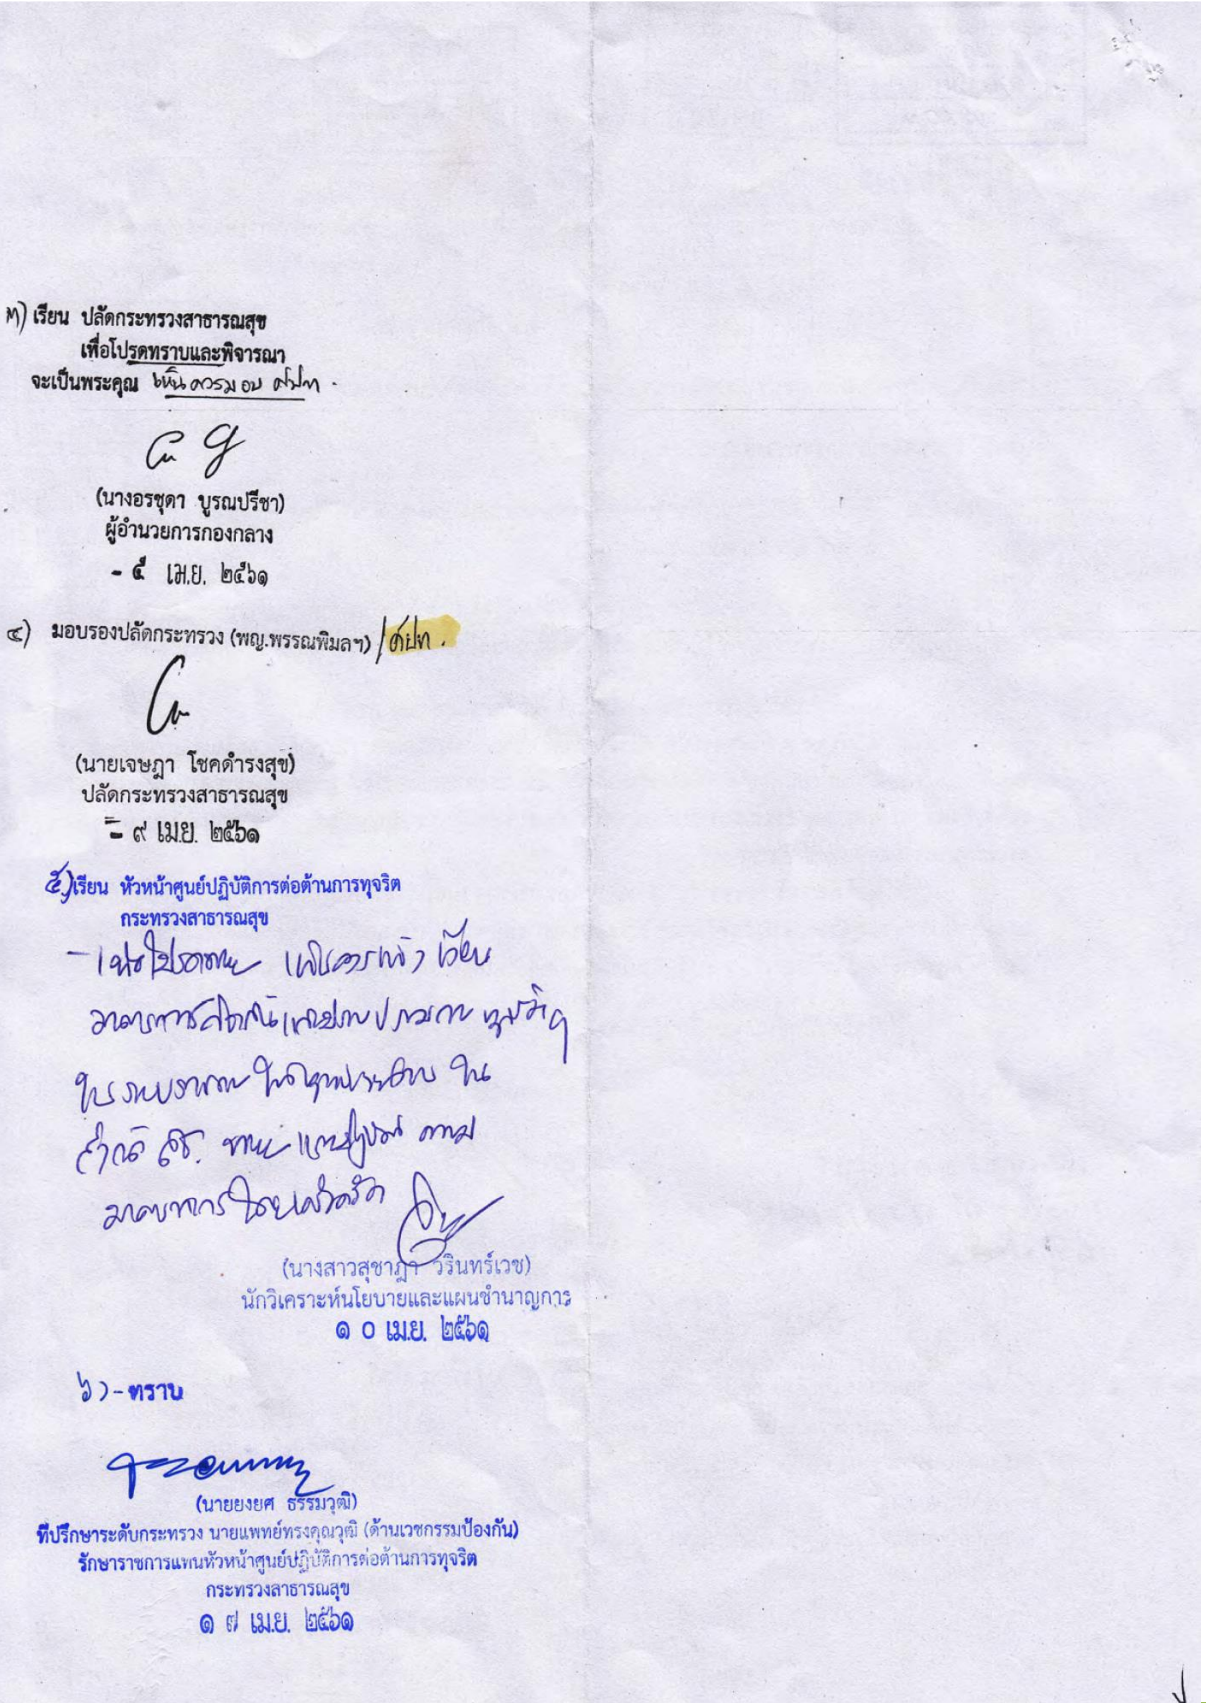 ๓) เรียน ปลัดกระทรวงสาธารณสุข
เพื่อโปรดทราบและพิจารณา
จะเป็นพระคุณ เห็นควรมอบ ศปท.
(นางอรชุดา บูรณปรีชา)
ผู้อำนวยการกองกลาง
- ๕ เม.ย. ๒๕๖๑
๔) มอบรองปลัดกระทรวง (พญ.พรรณพิมลฯ) / ศปท.
(นายเจษฎา โชคดำรงสุข)
ปลัดกระทรวงสาธารณสุข
- ๙ เม.ย. ๒๕๖๑
๕) เรียน หัวหน้าศูนย์ปฏิบัติการต่อต้านการทุจริต
กระทรวงสาธารณสุข
- เพื่อโปรดทราบ เห็นควรแจ้งเวียน
มาตรการ
ใน
ตาม
มาตรการโดยเคร่งครัด
(นางสาวสุชาฎา วรินทร์เวช)
นักวิเคราะห์นโยบายและแผนชำนาญการ
๑ ๐ เม.ย. ๒๕๖๑
๖) - ทราบ
(นายยงยศ ธรรมวุฒิ)
ที่ปรึกษาระดับกระทรวง นายแพทย์ทรงคุณวุฒิ (ด้านเวชกรรมป้องกัน)
รักษาราชการแทนหัวหน้าศูนย์ปฏิบัติการต่อต้านการทุจริต
กระทรวงสาธารณสุข
๑ ๗ เม.ย. ๒๕๖๑